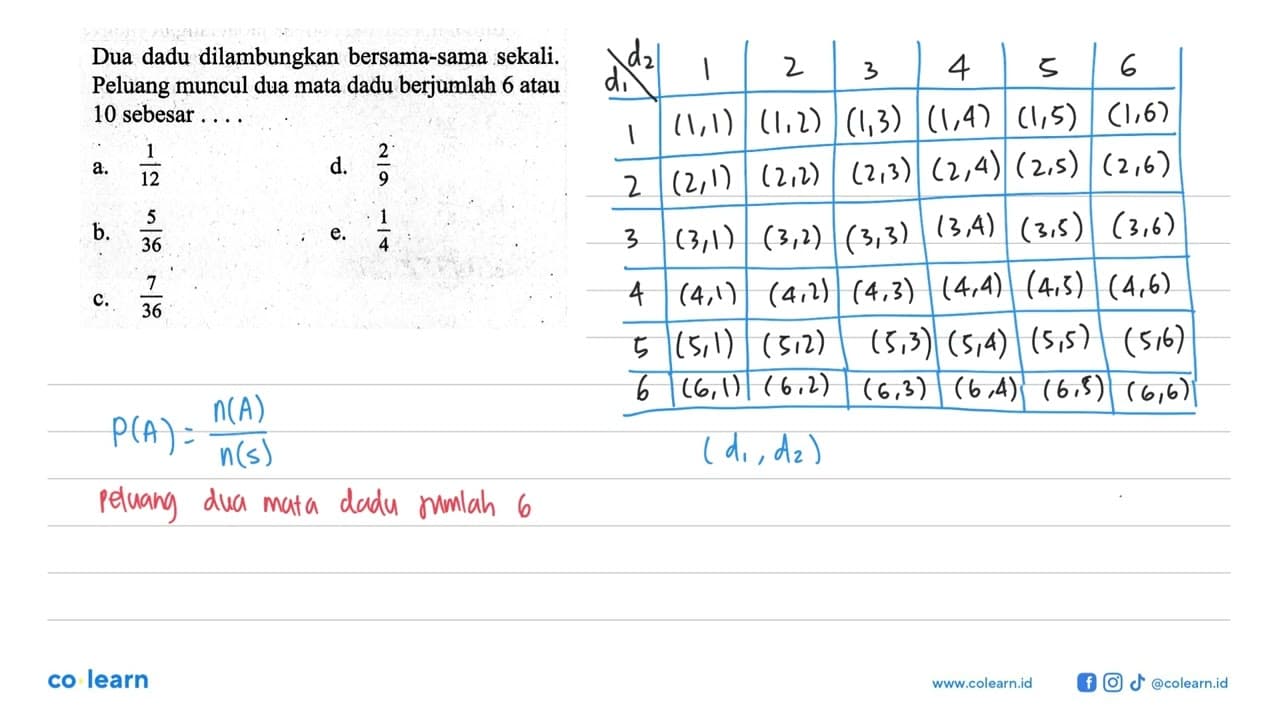 Dua dadu dilambungkan bersama-sama sekali.
Peluang muncul dua mata dadu berjumlah 6 atau
10 sebesar . . . .
a. 1/12 d. 2/9
b. 5/36 e. 1/4
c. 7/36
d₁ \ d₂ 1 2 3 4 5 6
1 (1,1) (1,2) (1,3) (1,4) (1,5) (1,6)
2 (2,1) (2,2) (2,3) (2,4) (2,5) (2,6)
3 (3,1) (3,2) (3,3) (3,4) (3,5) (3,6)
4 (4,1) (4,2) (4,3) (4,4) (4,5) (4,6)
5 (5,1) (5,2) (5,3) (5,4) (5,5) (5,6)
6 (6,1) (6,2) (6,3) (6,4) (6,5) (6,6)
(d₁, d₂)
P(A) = n(A)/n(s)
Peluang dua mata dadu jumlah 6
co learn
www.colearn.id @colearn.id